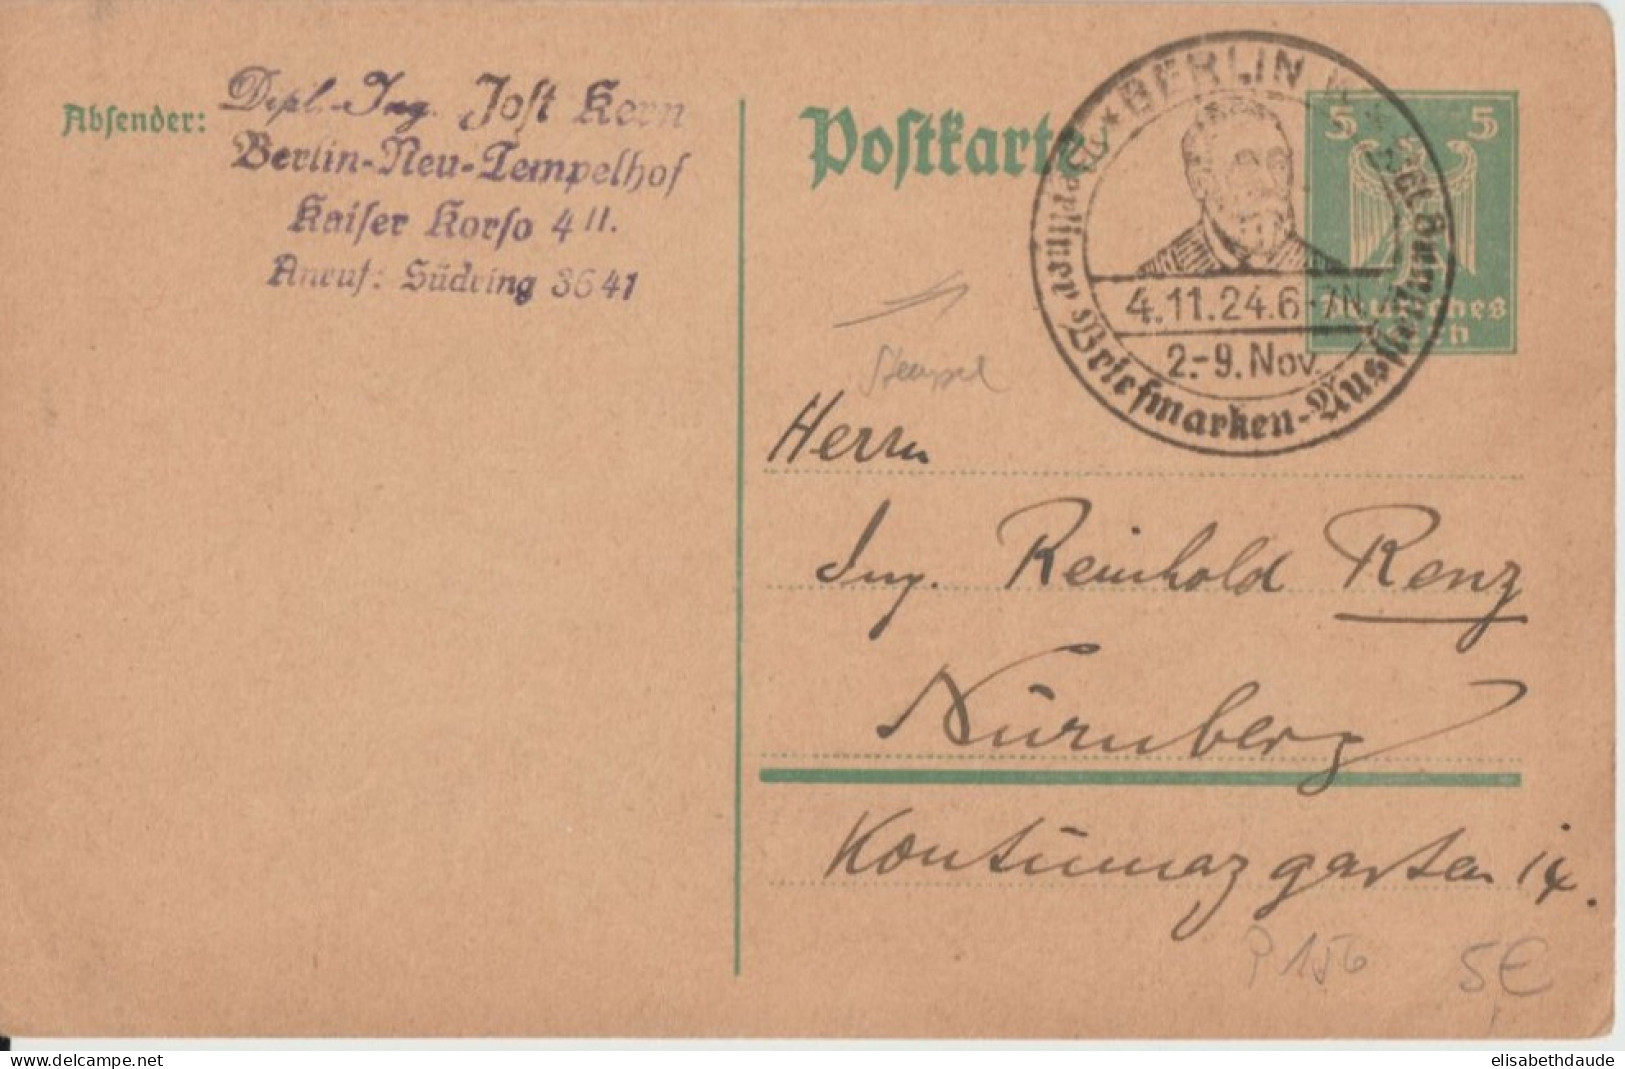 Absender:
Dipl.-Ing. Jost Kern
Berlin-Neu-Tempelhof
Kaiser Korso 4 II.
Anruf: Südring 3641
Postkarte
BERLIN W
4.11.24.6-7N
2.-9. Nov.
Briefmarken-Ausstellung
5 5
Deutsches
Reich
Stempel
Herrn
Ing. Reinhold Renz
Nürnberg
Kontumazgarten 14.
P 156 5€
elisabethdaude